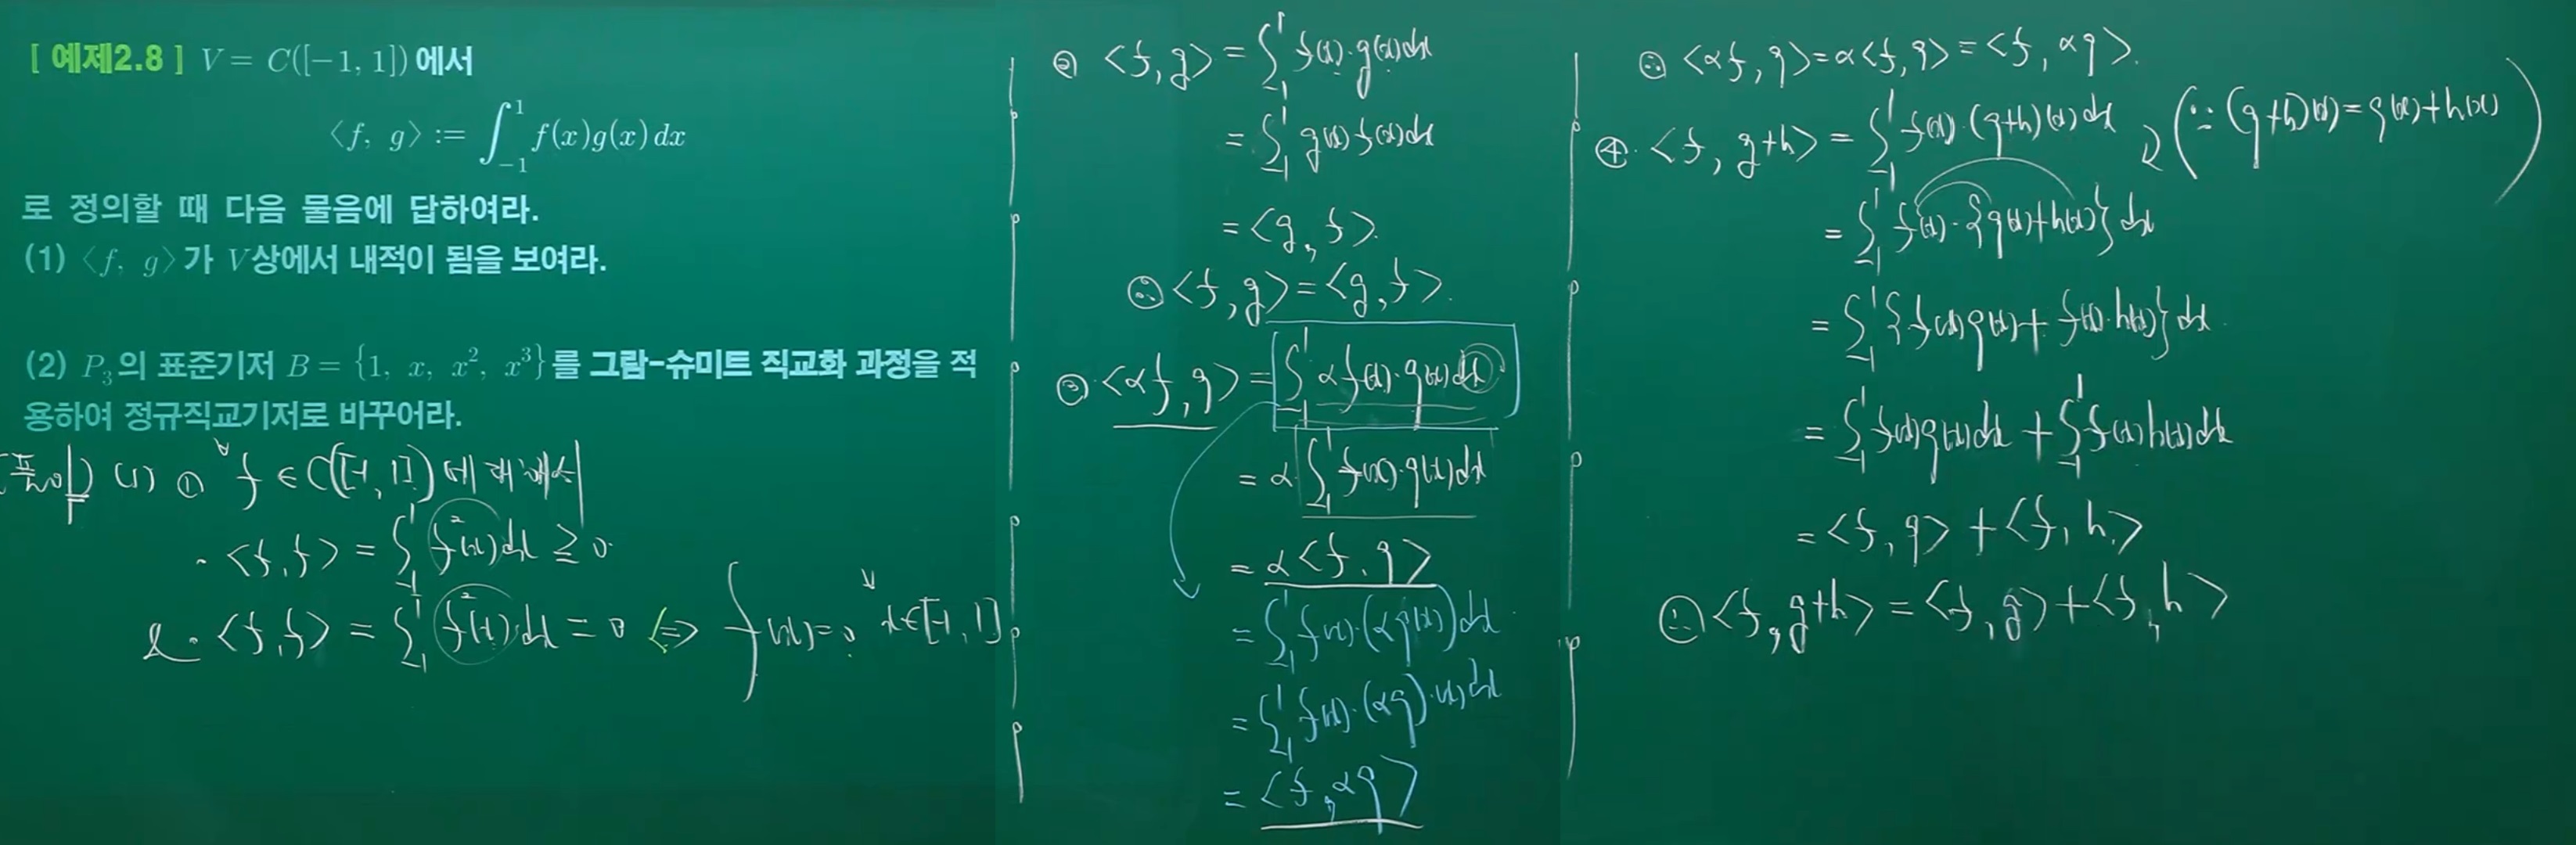 [ 예제2.8 ] V = C([−1, 1])에서
⟨f, g⟩ := ∫_{−1}^{1} f(x)g(x) dx
로 정의할 때 다음 물음에 답하여라.
(1) ⟨f, g⟩가 V상에서 내적이 됨을 보여라.
(2) P₃의 표준기저 B = {1, x, x², x³}를 그람-슈미트 직교화 과정을 적
용하여 정규직교기저로 바꾸어라.
(풀이) (1) ① ∀f ∈ C([-1, 1])에 대해서
· <f, f> = ∫_{-1}^{1} f²(x)dx ≥ 0.
& · <f, f> = ∫_{-1}^{1} f²(x)dx = 0 ⇔ f(x) = 0, ∀x∈[-1, 1]
② <f, g> = ∫_{-1}^{1} f(x)·g(x)dx
= ∫_{-1}^{1} g(x)f(x)dx
= <g, f>.
∴ <f, g> = <g, f>.
③ <αf, g> = ∫_{-1}^{1} αf(x)·g(x)dx
= α∫_{-1}^{1} f(x)·g(x)dx
= α<f, g>
= ∫_{-1}^{1} f(x)·(αg(x))dx
= ∫_{-1}^{1} f(x)·(αg)·(x)dx
= <f, αg>
∴ <αf, g> = α<f, g> = <f, αg>.
④. <f, g+h> = ∫_{-1}^{1} f(x)·(g+h)(x)dx (∵ (g+h)(x) = g(x)+h(x))
= ∫_{-1}^{1} f(x)·{g(x)+h(x)}dx
= ∫_{-1}^{1} {f(x)g(x) + f(x)·h(x)}dx
= ∫_{-1}^{1} f(x)g(x)dx + ∫_{-1}^{1} f(x)h(x)dx
= <f, g> + <f, h>
∴ <f, g+h> = <f, g> + <f, h>